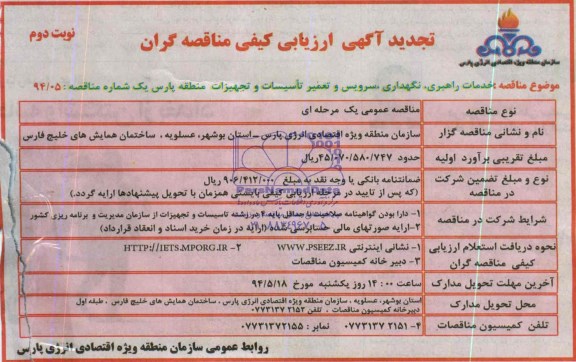 تجدید آگهی ارزیابی کیفی مناقصه گران
نوبت دوم
سازمان منطقه ویژه اقتصادی انرژی پارس
موضوع مناقصه: خدمات راهبری، نگهداری، سرویس و تعمیر تأسیسات و تجهیزات منطقه پارس یک شماره مناقصه: ۹۴/۰۵
نوع مناقصه
مناقصه عمومی یک مرحله ای
نام و نشانی مناقصه گزار
سازمان منطقه ویژه اقتصادی انرژی پارس - استان بوشهر، عسلویه، ساختمان همایش های خلیج فارس
مبلغ تقریبی برآورد اولیه
حدود ۴۵/۰۷۰/۵۸۰/۷۴۷ ریال
نوع و مبلغ تضمین شرکت
در مناقصه
ضمانتنامه بانکی یا وجه نقد به مبلغ ۹۰۶/۴۱۲/۰۰۰ ریال
(که پس از تایید در مرحله ارزیابی کیفی بایستی همزمان با تحویل پیشنهادها ارایه گردد.)
شرایط شرکت در مناقصه
۱- دارا بودن گواهینامه صلاحیت با حداقل پایه ۴ در رشته تاسیسات و تجهیزات از سازمان مدیریت و برنامه ریزی کشور
۲- ارایه صورتهای مالی حسابرسی شده (ارایه در زمان خرید اسناد و انعقاد قرارداد)
نحوه دریافت استعلام ارزیابی
کیفی مناقصه گران
۱- نشانی اینترنتی WWW.PSEEZ.IR ۲- HTTP://IETS.MPORG.IR
۳- دبیر خانه کمیسیون مناقصات
آخرین مهلت تحویل مدارک
ساعت ۱۴:۰۰ روز یکشنبه مورخ ۹۴/۵/۱۸
محل تحویل مدارک
استان بوشهر، عسلویه، سازمان منطقه ویژه اقتصادی انرژی پارس، ساختمان همایش های خلیج فارس، طبقه اول
دبیرخانه کمیسیون مناقصات، تلفن ۰۷۷۳۱۳۷۲۱۵۲
تلفن کمیسیون مناقصات
۴- ۰۷۷۳۱۳۷۲۱۵۱ نمابر: ۰۷۷۳۱۳۷۲۱۵۵
روابط عمومی سازمان منطقه ویژه اقتصادی انرژی پارس